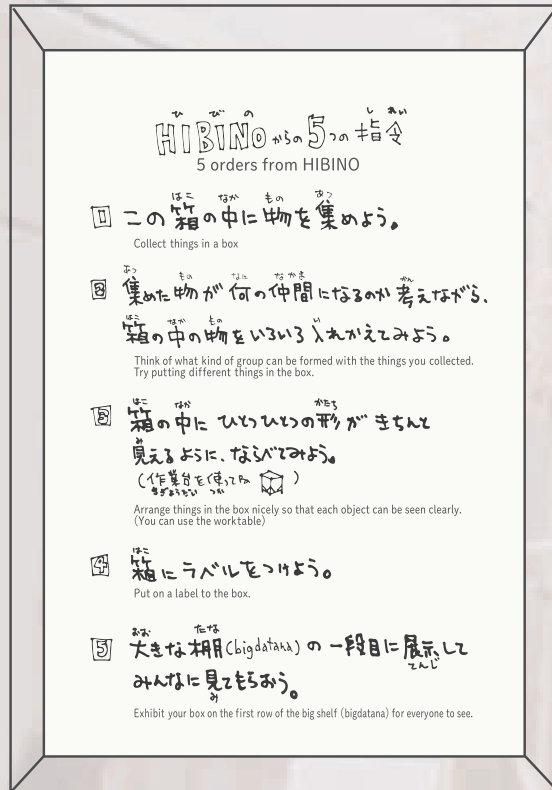 HIBINOからの5つの指令
5 orders from HIBINO
1 この箱の中に物を集めよう。
Collect things in a box
2 集めた物が何の仲間になるのか考えながら、
箱の中の物をいろいろ入れかえてみよう。
Think of what kind of group can be formed with the things you collected.
Try putting different things in the box.
3 箱の中にひとつひとつの形がきちんと
見えるように、ならべてみよう。
(作業台を使ってね)
Arrange things in the box nicely so that each object can be seen clearly.
(You can use the worktable)
4 箱にラベルをつけよう。
Put on a label to the box.
5 大きな棚(bigdatana)の一段目に展示して
みんなに見てもらおう。
Exhibit your box on the first row of the big shelf (bigdatana) for everyone to see.